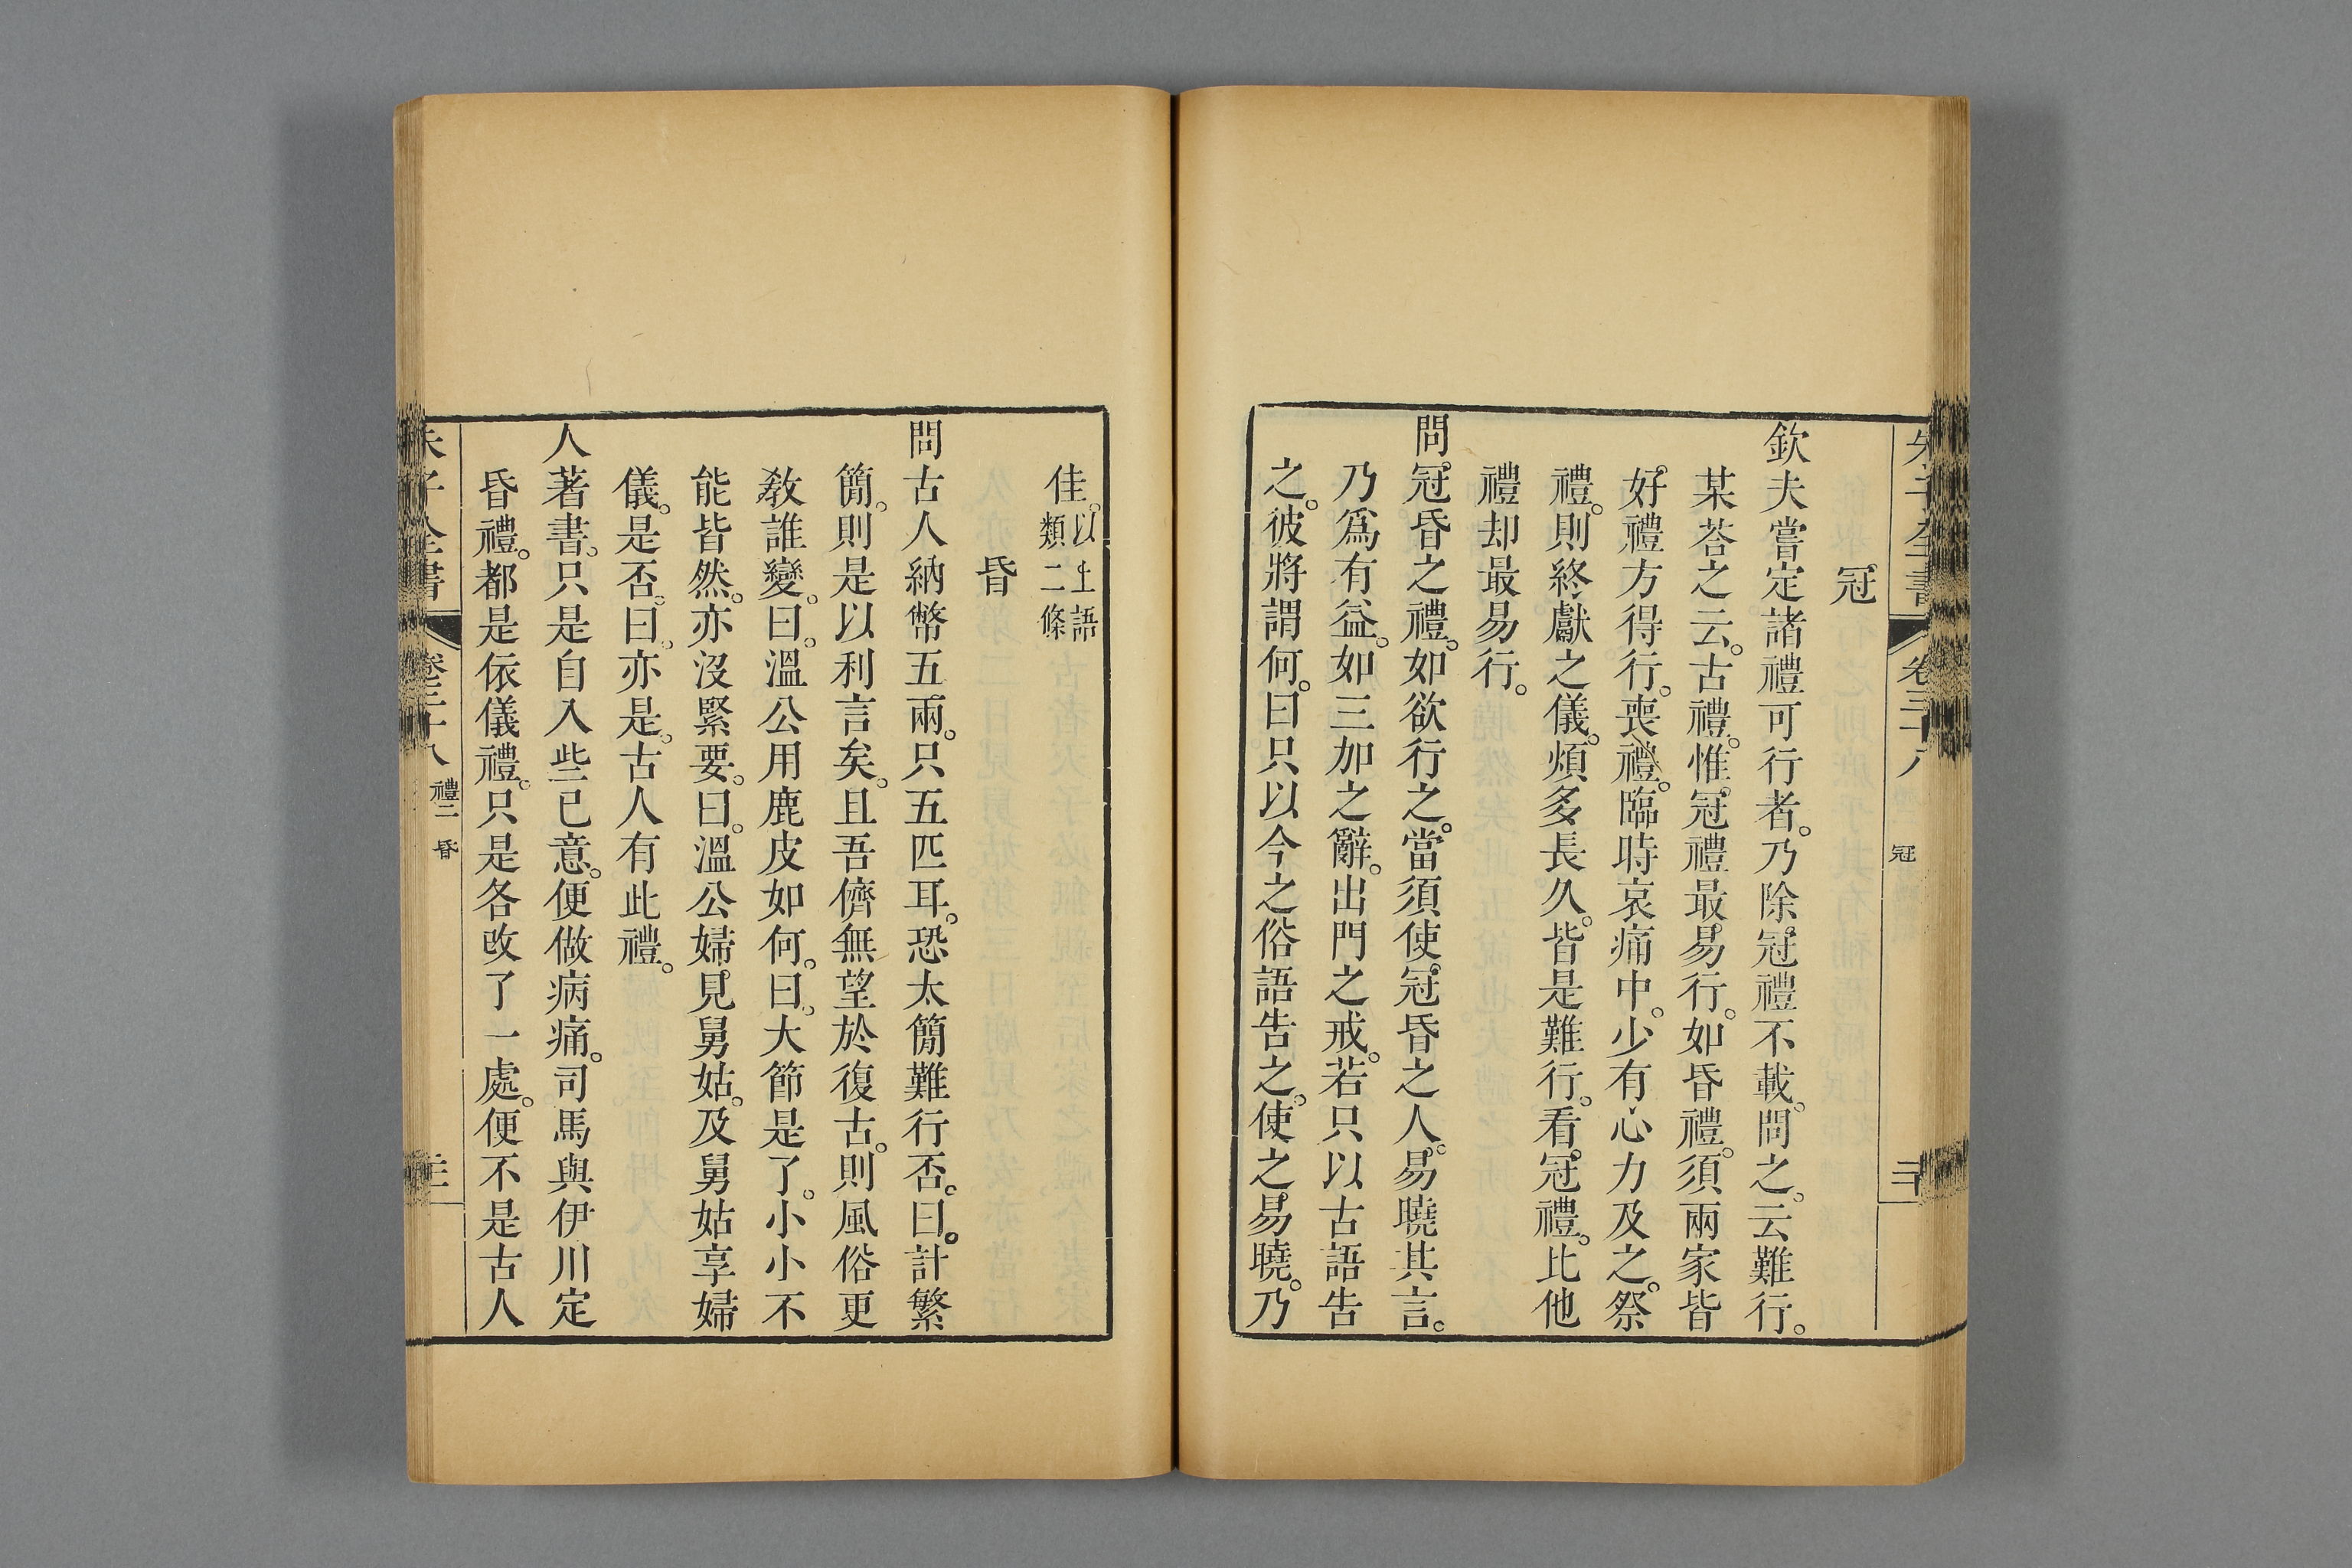 冠
欽夫嘗定諸禮可行者。乃除冠禮不載。問之。云難行。
某荅之云。古禮。惟冠禮最易行。如昏禮。須兩家皆
好禮方得行。喪禮。臨時哀痛中。少有心力及之。祭
禮。則終獻之儀。煩多長久。皆是難行。看冠禮。比他
禮却最易行。
問。冠昏之禮。如欲行之。當須使冠昏之人。易曉其言。
乃爲有益。如三加之辭。出門之戒。若只以古語告
之。彼將謂何。曰。只以今之俗語告之。使之易曉。乃
佳。以上語
類二條
昏
問古人納幣五兩。只五匹耳。恐太簡難行否。曰。計繁
簡。則是以利言矣。且吾儕無望於復古。則風俗更
敎誰變。曰。溫公用鹿皮如何。曰。大節是了。小小不
能皆然。亦沒緊要。曰。溫公婦見舅姑。及舅姑享婦
儀。是否。曰。亦是。古人有此禮。
人著書。只是自入些已意。便做病痛。司馬與伊川定
昏禮。都是依儀禮。只是各改了一處。便不是古人
卷三十八
禮二
昏
冠